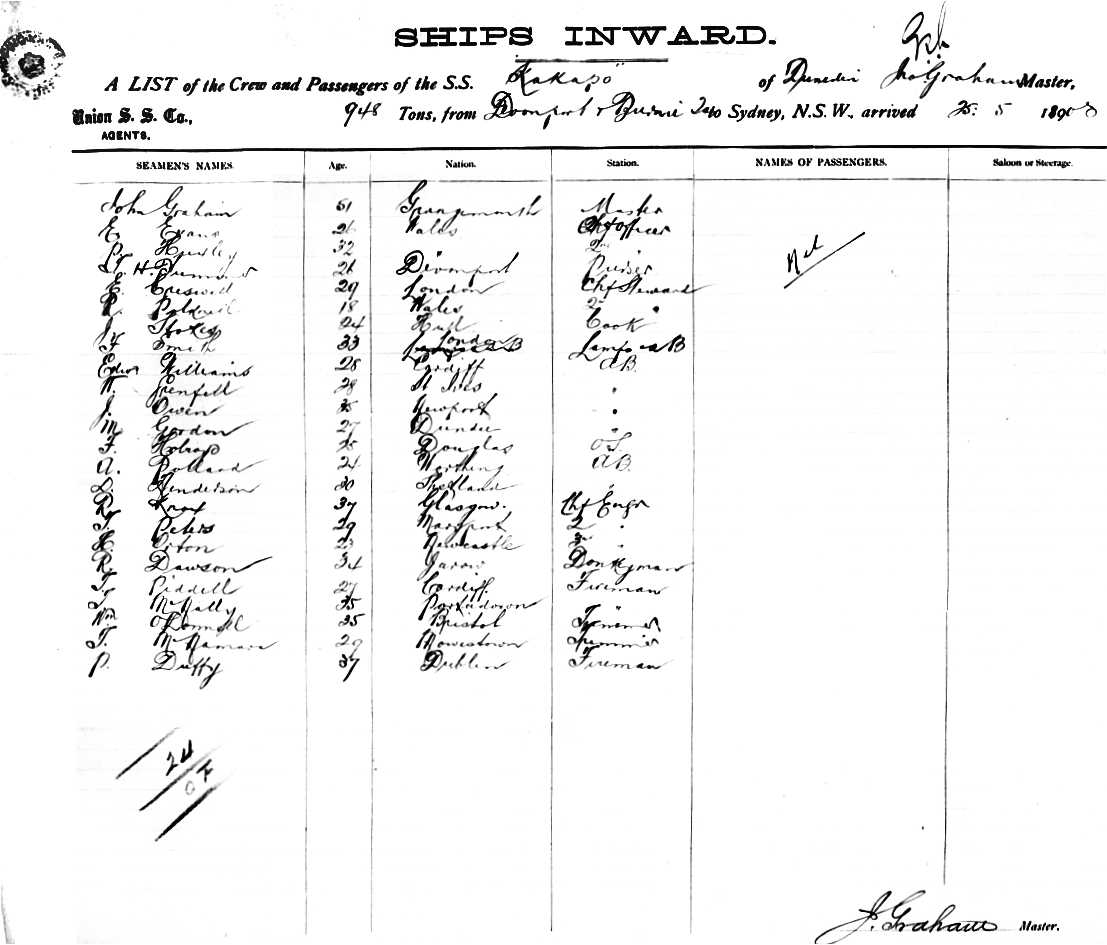 SHIPS INWARD.
A LIST of the Crew and Passengers of the S.S. "Kakapo" of Dunedin Jno Graham Master,
Union S. S. Co., 948 Tons, from Devonport & Burnie to Sydney, N.S.W., arrived 25. 5 1890
AGENTS.
SEAMEN'S NAMES. Age. Nation. Station. NAMES OF PASSENGERS. Saloon or Steerage.
John Graham 51 Grangemouth Master
E. Evans 26 Wales Chf Officer
P. Huxley 32 2nd
T. H. 26 Devonport Purser
E. Creswell 29 London Chf Steward
18 Wales 2nd "
J. Stokes 24 Hull Cook
F. Smith 33 London Lamps AB
Edwd Williams 28 Cardiff AB.
W. Grenfell 28 St Ives "
J. Owen 35 Newport "
M Gordon 27 Dundee "
F. 25 Douglas O.S.
A. Pollard 24 Worthing AB.
D. Henderson 30 Shetland "
R. Knox 37 Glasgow. Chf Engr
T. Peters 29 Maryport 2 "
H. 23 Newcastle 3rd "
R. Dawson 34 Jarow Donkyman
T. Riddell 27 Cardiff. Fireman
T. McNally 35 Portadown "
Wm O'Connell 35 Bristol
T. McNamara 29 Trimmer
P. Duffy 37 Dublin Fireman
Nil
24
J. Graham Master.